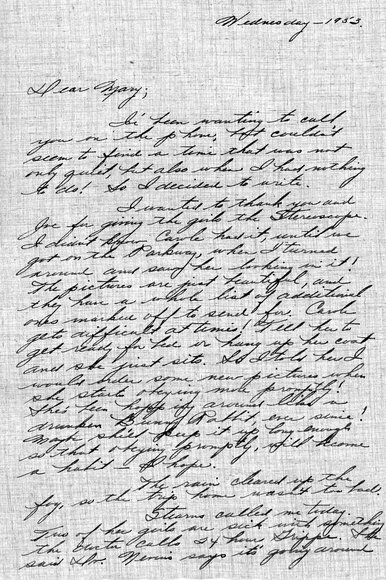 Wednesday - 1953.
Dear Mary;
I've been wanting to call
you on the phone, but couldn't
seem to find a time that was not
only quiet, but also when I had nothing
to do! So I decided to write.
I wanted to thank you and
Joe for giving the girls the Stereoscope.
I didn't know Carole had it, until we
got on the Parkway, when I turned
around and saw her looking in it!
The pictures are just beautiful, and
they have a whole list of additional
ones marked off to send for. Carole
gets difficult at times! I tell her to
get ready for bed or hang up her coat
and she just sits. So I told her I
would order some new pictures when
she starts obeying more promptly!
She's been hopping around like a
drunken Bunny Rabbit ever since!
Maybe she'll keep it up long enough
so that obeying promptly, will become
a habit - I hope.
The rain cleared up the
fog, so the trip home wasn't too bad.
Stearns called me today.
Two of her girls are sick with something
the Doctor calls 24 hour Grippe. She
said Dr. Nevins says it's going around